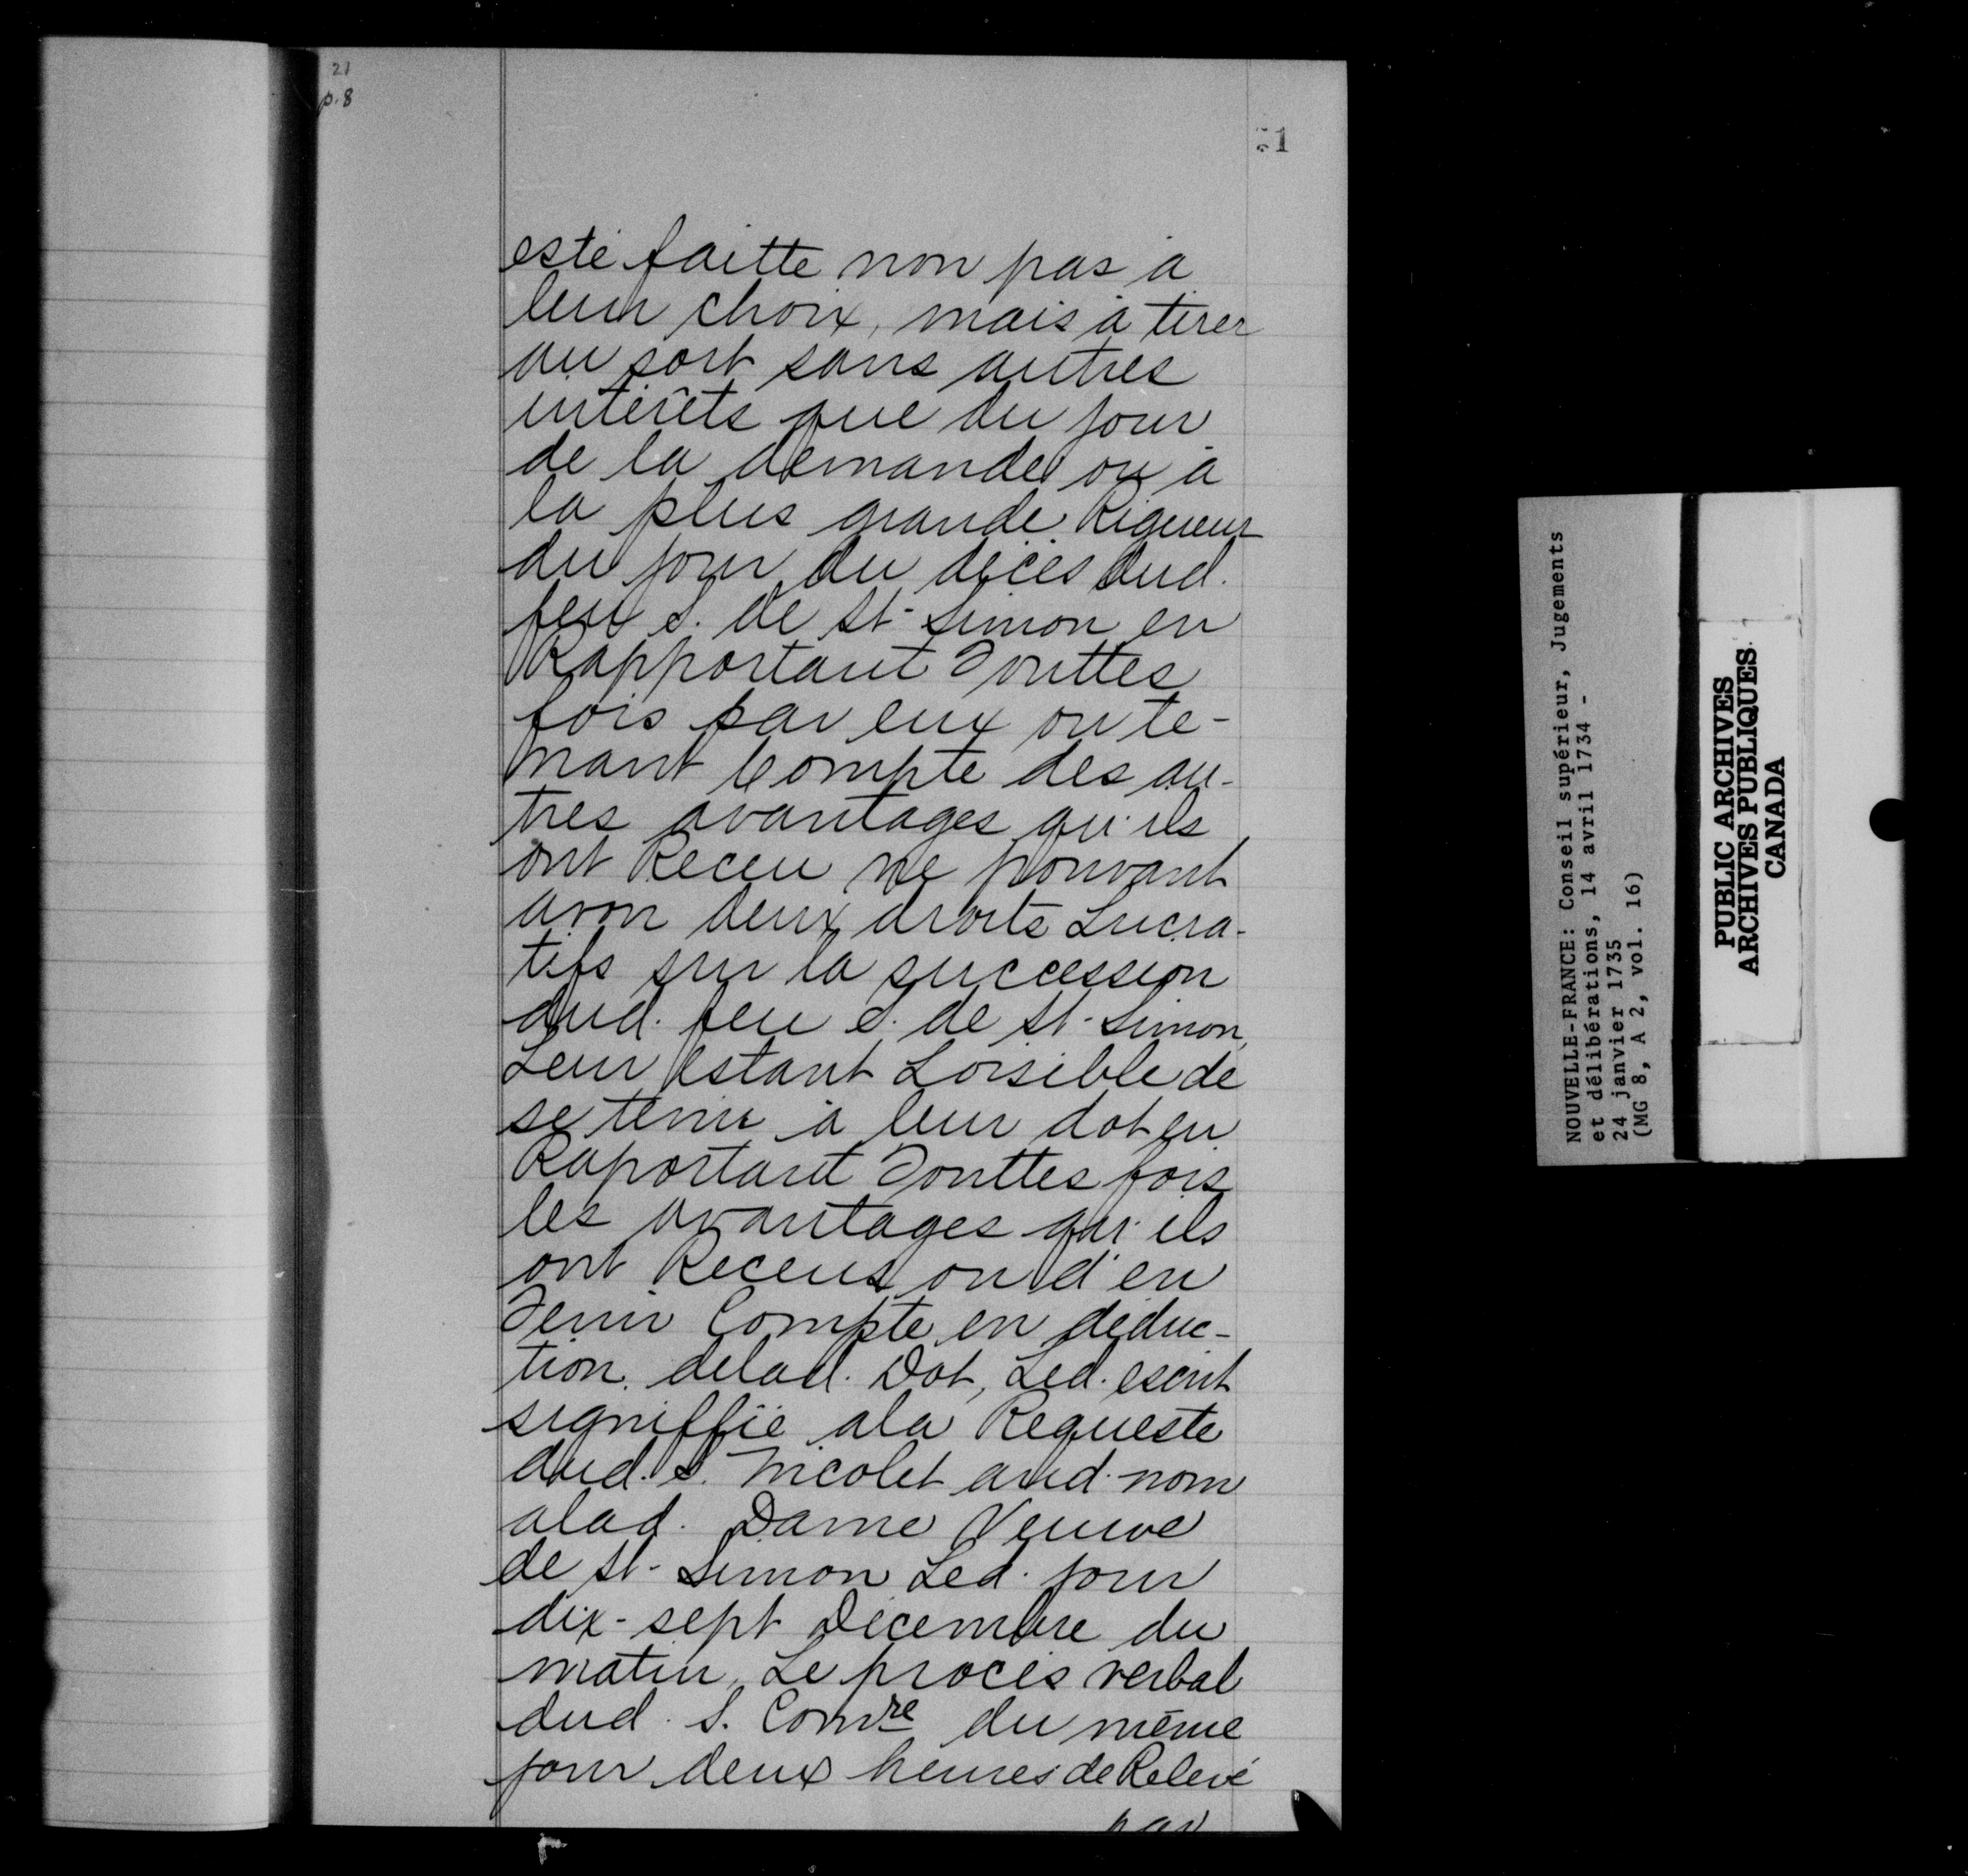 21
p. 8
51
esté faitte non pas à
leur choix, mais à tirer
au sort sans autres
intérêts que du jour
de la demande ou à
la plus grande Rigueur
du jour du décès dud.
feu S. de St-Simon en
Rapportant Touttes
fois par eux ou te-
nant Compte des au-
tres avantages qu'ils
ont Receu ne pouvant
avoir deux droits Lucra-
tifs sur la succession
dud. feu S. de St-Simon,
Leur estant Loisible de
se tenir à leur dot en
Raportant Touttes fois
les avantages qu'ils
ont Receus ou d'en
Tenir Compte en déduc-
tion delad. Dot, Led. escrit
signiffié ala Requeste
dud. S. Nicolet aud. nom
alad. Dame Veuve
de St-Simon Led. jour
dix-sept Décembre du
matin, Le procès verbal
dud. S. Comre du même
jour deux heures de Relevé
par
NOUVELLE-FRANCE: Conseil supérieur, Jugements
et délibérations, 14 avril 1734 -
24 janvier 1735
(MG 8, A 2, vol. 16)
PUBLIC ARCHIVES
ARCHIVES PUBLIQUES
CANADA